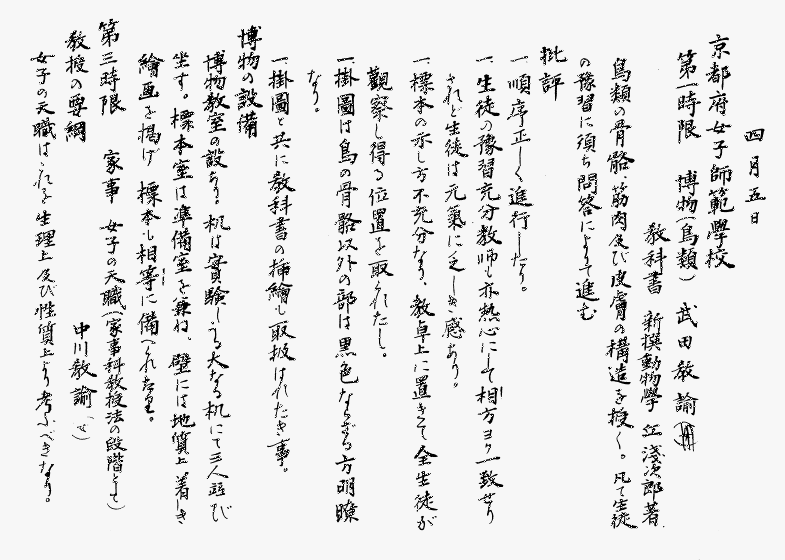 四月五日
京都府女子師範學校
第一時限 博物(鳥類) 武田教諭
教科書 新撰動物學 丘淺次郎著
鳥類の骨骼、筋肉及び皮膚の構造を授く。凡て生徒
の豫習に須ち問答によりて進む
批評
一、順序正しく進行したり。
一、生徒の豫習充分教師も亦熱心にして相方ヨク一致せり
されど生徒は元氣に乏しき感あり。
一、標本の示し方不充分なり、教卓上に置きて全生徒が
觀察し得る位置を取られたし。
一、掛圖は鳥の骨骼以外の部は黒色ならざる方明瞭
なり。
一、掛圖と共に教科書の挿繪も取扱はれたき事。
博物の設備
博物教室の設あり。机は實験しうる大なる机にて三人並び
坐す。標本室は準備室を兼ね、壁には地質上著しき
繪画を掲げ標本も相等に備へられたり。
第三時限 家事 女子の天職(家事科教授法の段階として)
教授の要綱 中川教諭(せ)
女子の天職はこれを生理上及び性質上より考ふべきなり。